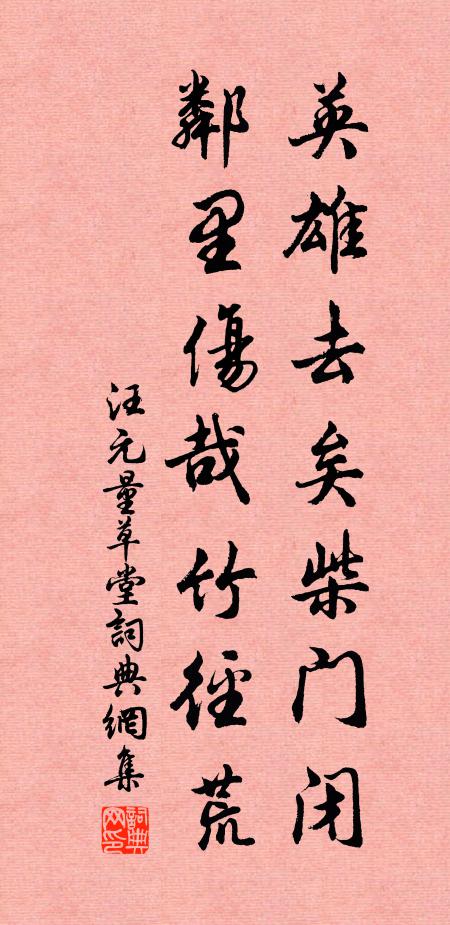 英雄去矣柴门闭
鄰里傷哉竹徑荒
汪元量草堂詞典網集
詞典网印